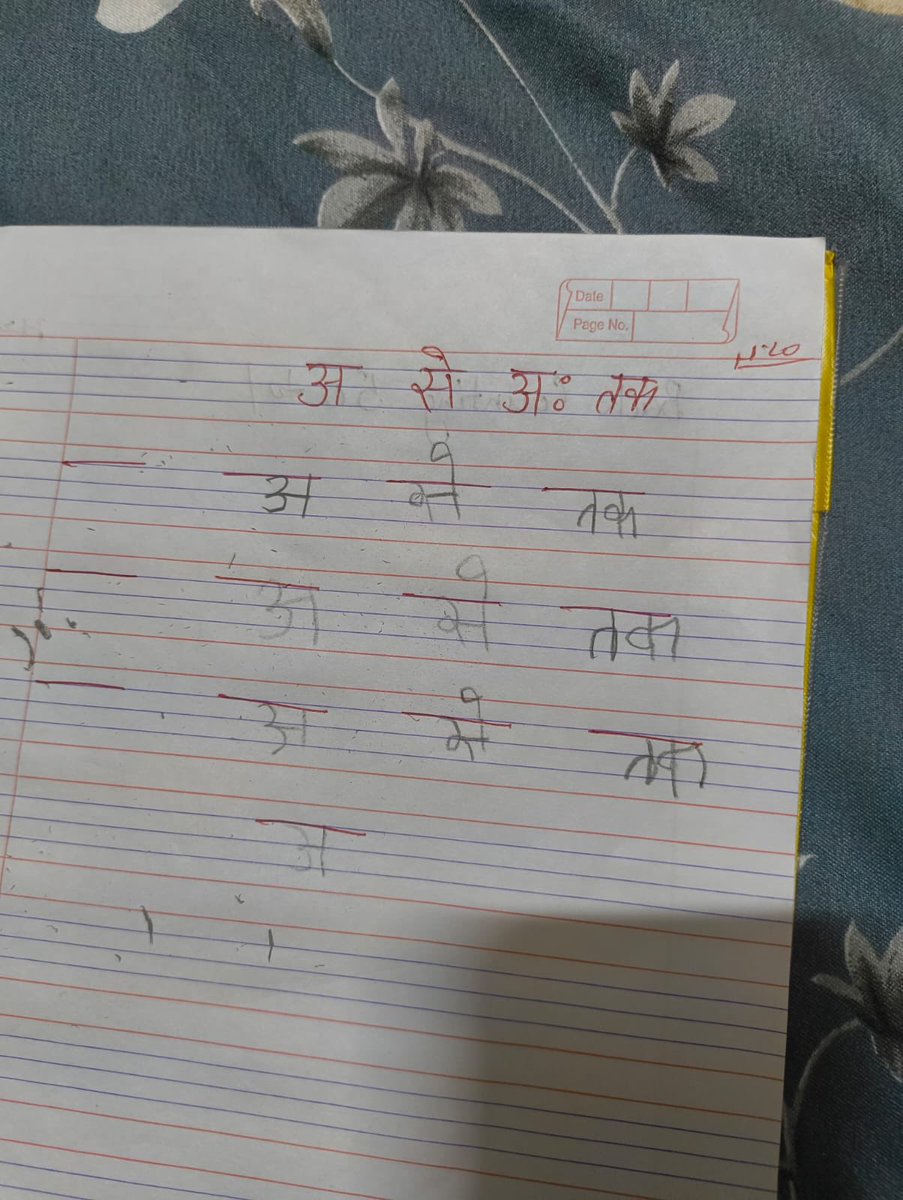 Date
Page No.
अ से अः तक
अ से तक
अ से तक
अ से तक
अ